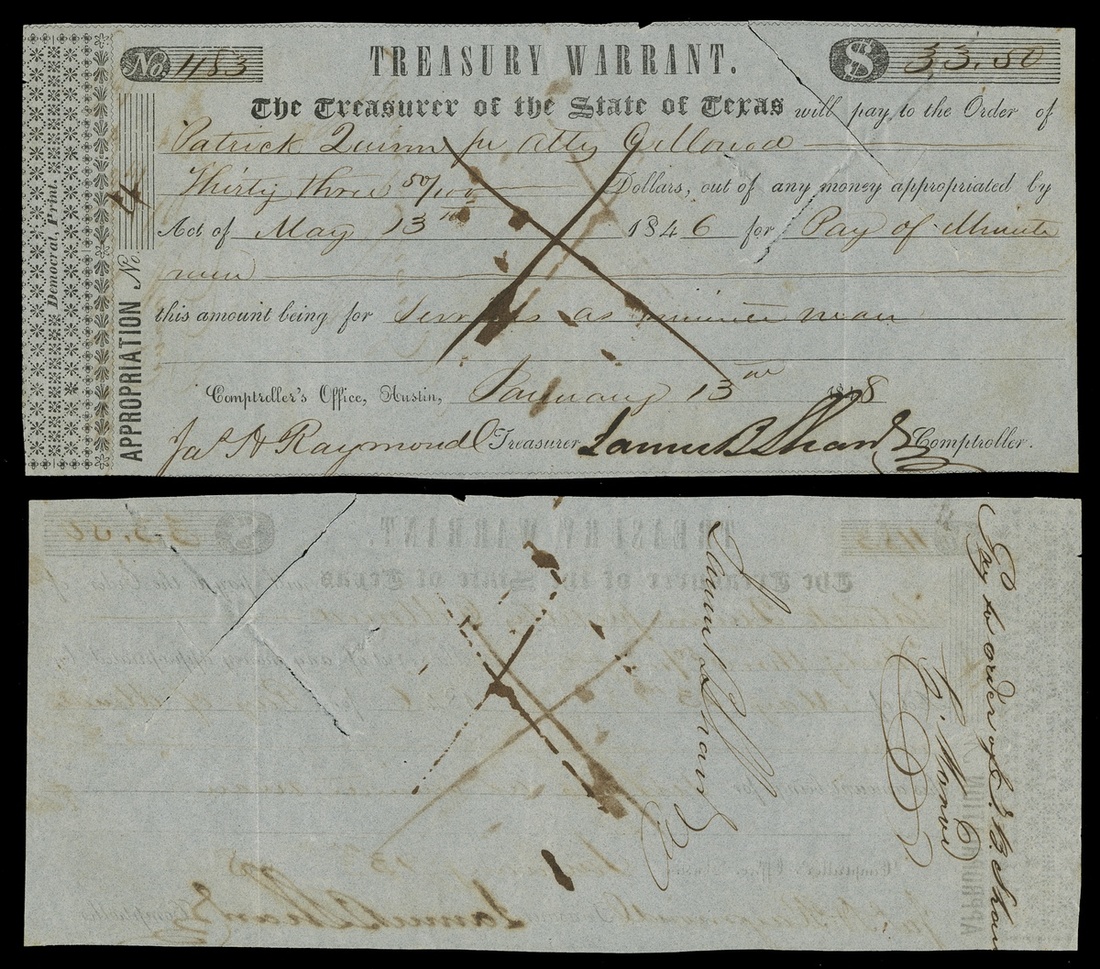 No. 1183 TREASURY WARRANT. $ 33.50
The Treasurer of the State of Texas will pay to the Order of
Patrick Quinn pr Atty
Thirty three 50/100 Dollars, out of any money appropriated by
Act of May 13th 1846 for Pay of Minute
men
this amount being for Services as minute man
Comptroller's Office, Austin, January 13th 1848
Jas H Raymond Treasurer James B Shaw Comptroller.
APPROPRIATION No. 4
Democrat, Print.
James B Shaw
Pay to order of J. B. Shaw